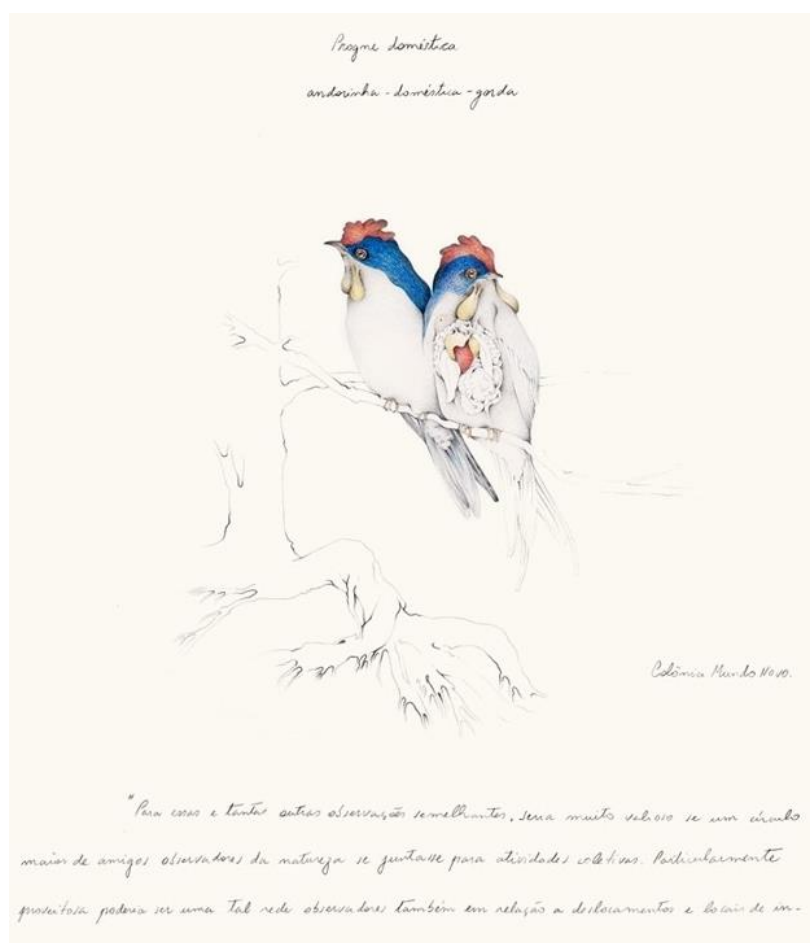 Progne doméstica
andorinha - doméstica - gorda
Colônia Mundo Novo.
"Para essas e tantas outras observações semelhantes, seria muito valioso se um círculo
maior de amigos observadores da natureza se juntasse para atividades coletivas. Particularmente
proveitosa poderia ser uma tal rede observadores também em relação a deslocamentos e locais de in-